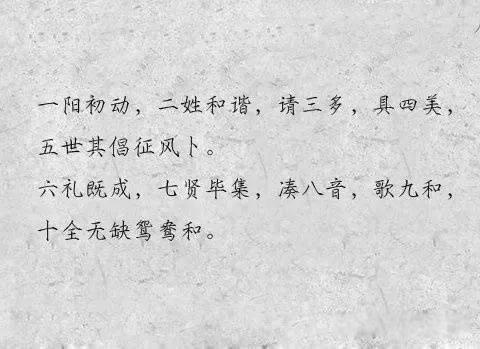 一阳初动，二姓和谐，请三多，具四美，
五世其倡征风卜。
六礼既成，七贤毕集，凑八音，歌九和，
十全无缺鸳鸯和。